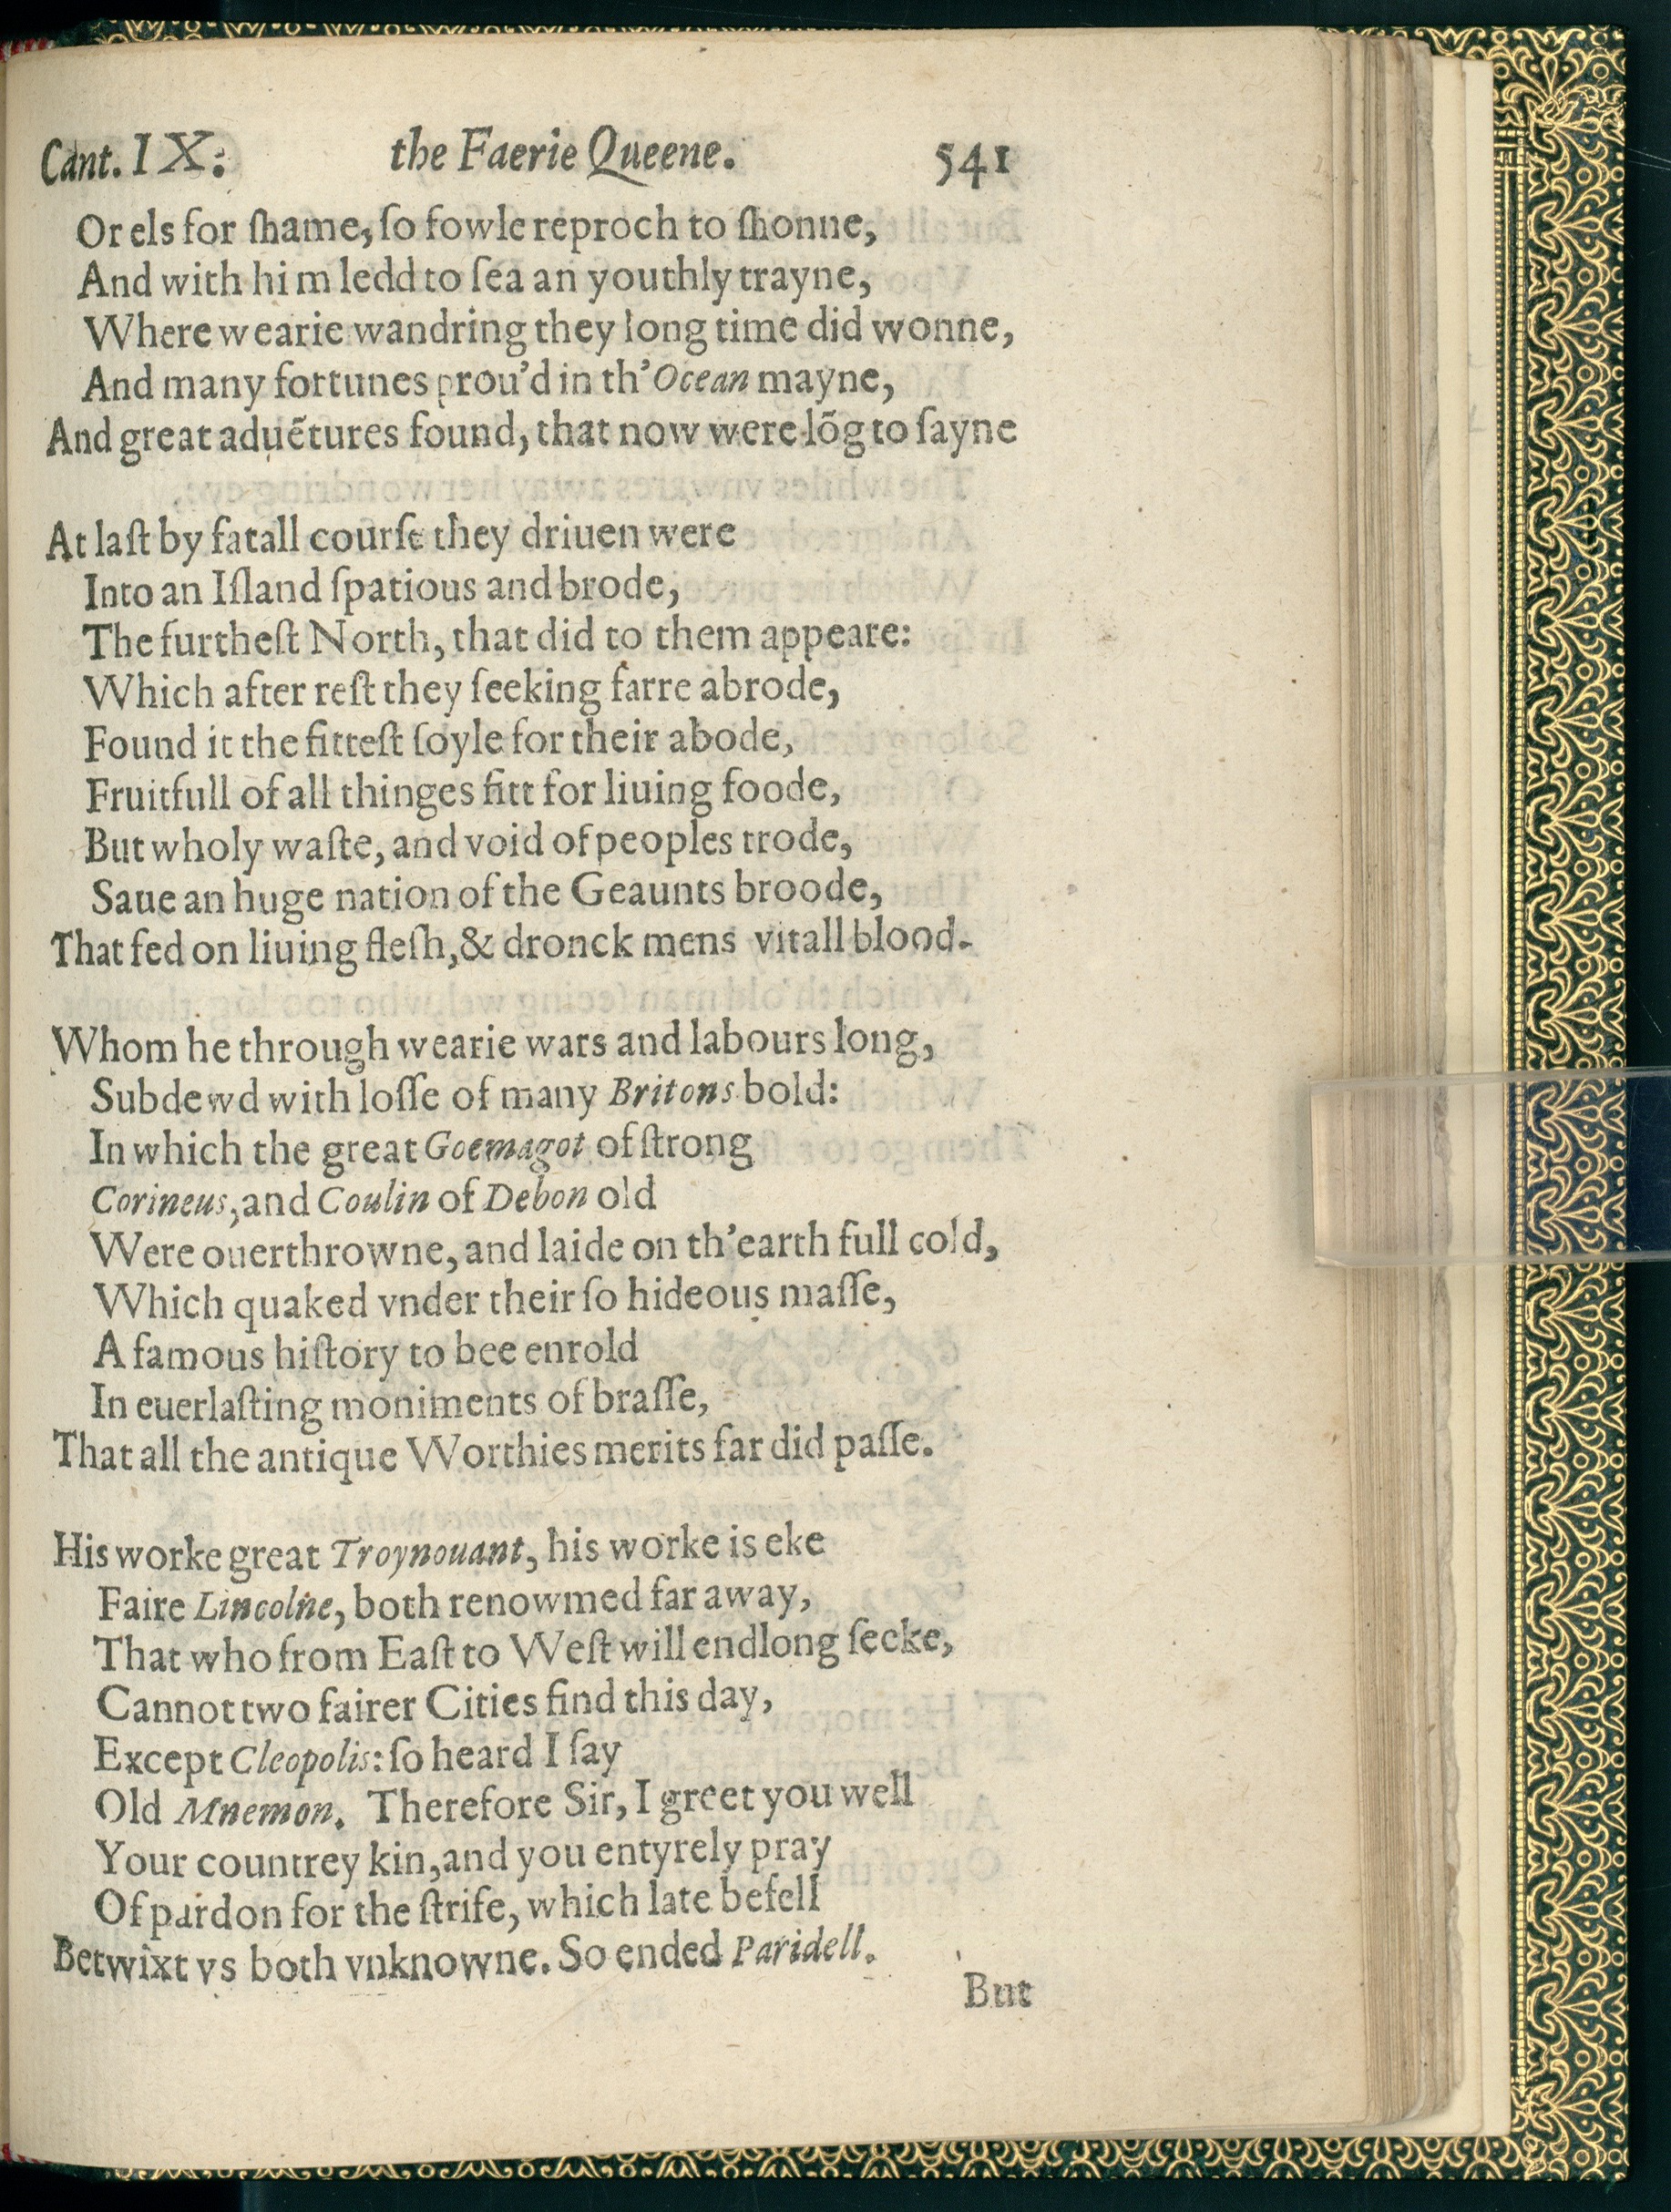 Cant. IX: the Faerie Queene. 541
Or els for ſhame, ſo fowle reproch to ſhonne,
And with him ledd to ſea an youthly trayne,
Where wearie wandring they long time did wonne,
And many fortunes prou'd in th'Ocean mayne,
And great aduẽtures found, that now were lõg to ſayne
At laſt by fatall courſe they driuen were
Into an Iſland ſpatious and brode,
The furtheſt North, that did to them appeare:
Which after reſt they ſeeking farre abrode,
Found it the fitteſt ſoyle for their abode,
Fruitfull of all thinges fitt for liuing foode,
But wholy waſte, and void of peoples trode,
Saue an huge nation of the Geaunts broode,
That fed on liuing fleſh, & dronck mens vitall blood.
Whom he through wearie wars and labours long,
Subdewd with loſſe of many Britons bold:
In which the great Goemagot of ſtrong
Corineus, and Coulin of Debon old
Were ouerthrowne, and laide on th'earth full cold,
Which quaked vnder their ſo hideous maſſe,
A famous hiſtory to bee enrold
In euerlaſting moniments of braſſe,
That all the antique Worthies merits far did paſſe.
His worke great Troynouant, his worke is eke
Faire Lincolne, both renowmed far away,
That who from Eaſt to Weſt will endlong ſeeke,
Cannot two fairer Cities find this day,
Except Cleopolis: ſo heard I ſay
Old Mnemon. Therefore Sir, I greet you well
Your countrey kin, and you entyrely pray
Of pardon for the ſtrife, which late befell
Betwixt vs both vnknowne. So ended Paridell.
But